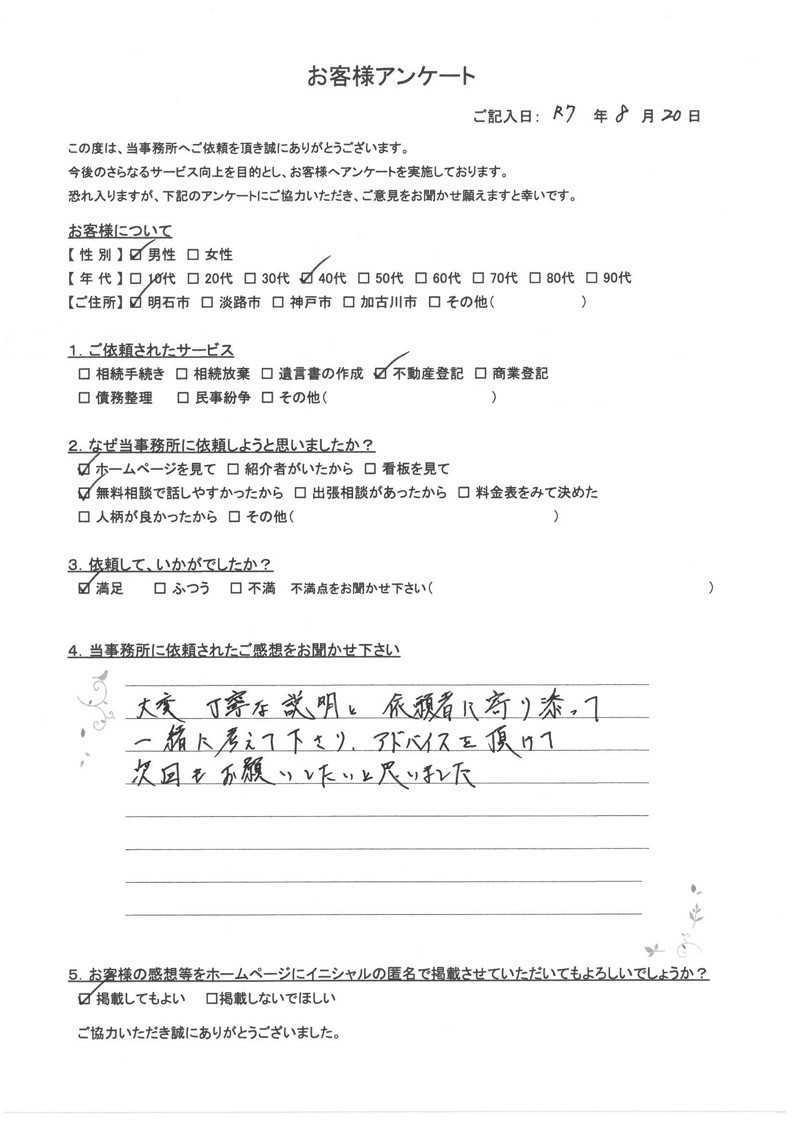 お客様アンケート
ご記入日： R7 年 8 月 20 日
この度は、当事務所へご依頼を頂き誠にありがとうございます。
今後のさらなるサービス向上を目的とし、お客様へアンケートを実施しております。
恐れ入りますが、下記のアンケートにご協力いただき、ご意見をお聞かせ願えますと幸いです。
お客様について
【 性 別 】 ☑ 男性 □ 女性
【 年 代 】 □ 10代 □ 20代 □ 30代 ☑ 40代 □ 50代 □ 60代 □ 70代 □ 80代 □ 90代
【ご住所】 ☑ 明石市 □ 淡路市 □ 神戸市 □ 加古川市 □ その他（ ）
１．ご依頼されたサービス
□ 相続手続き □ 相続放棄 □ 遺言書の作成 ☑ 不動産登記 □ 商業登記
□ 債務整理 □ 民事紛争 □ その他（ ）
２．なぜ当事務所に依頼しようと思いましたか？
☑ ホームページを見て □ 紹介者がいたから □ 看板を見て
☑ 無料相談で話しやすかったから □ 出張相談があったから □ 料金表をみて決めた
□ 人柄が良かったから □ その他（ ）
３．依頼して、いかがでしたか？
☑ 満足 □ ふつう □ 不満 不満点をお聞かせ下さい（ ）
４．当事務所に依頼されたご感想をお聞かせ下さい
大変 丁寧な説明と 依頼者に寄り添って
一緒に考えて下さり、アドバイスを頂けて
次回もお願いしたいと思いました
５．お客様の感想等をホームページにイニシャルの匿名で掲載させていただいてもよろしいでしょうか？
☑ 掲載してもよい □掲載しないでほしい
ご協力いただき誠にありがとうございました。